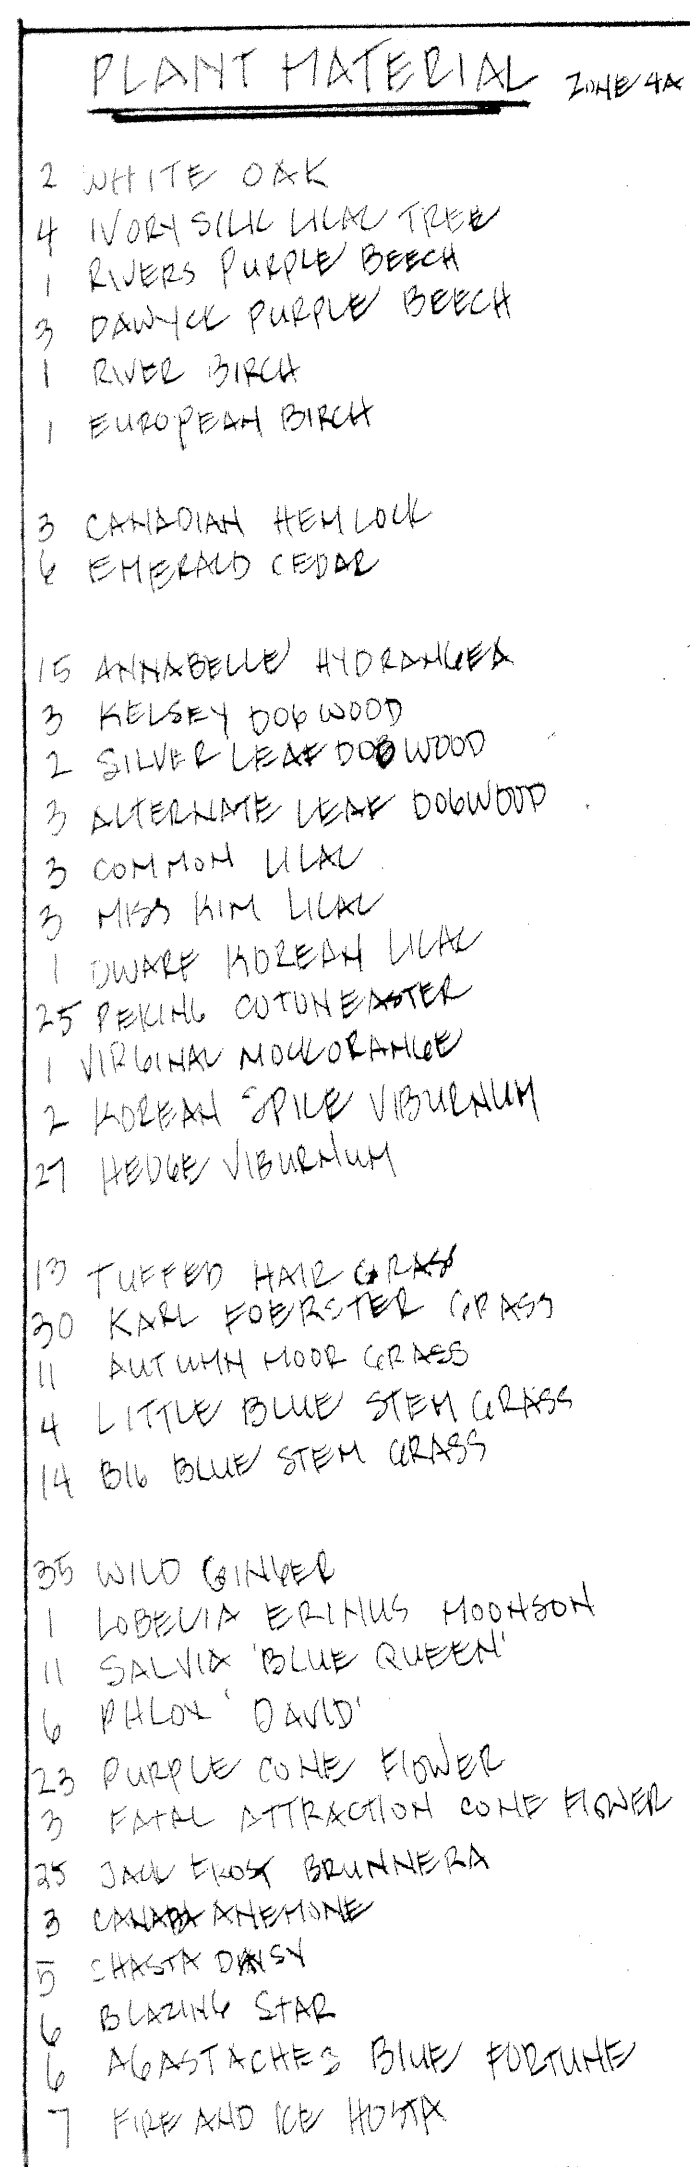 PLANT MATERIAL ZONE 4A
2 WHITE OAK
4 IVORY SILK LILAC TREE
1 RIVERS PURPLE BEECH
3 DAWYCK PURPLE BEECH
1 RIVER BIRCH
1 EUROPEAN BIRCH
3 CANADIAN HEMLOCK
6 EMERALD CEDAR
15 ANNABELLE HYDRANGEA
3 KELSEY DOGWOOD
2 SILVER LEAF DOGWOOD
3 ALTERNATE LEAF DOGWOOD
3 COMMON LILAC
3 MISS KIM LILAC
1 DWARF KOREAN LILAC
25 PEKING COTONEASTER
1 VIRGINAL MOCKORANGE
2 KOREAN SPICE VIBURNUM
27 HEDGE VIBURNUM
13 TUFFED HAIR GRASS
30 KARL FOERSTER GRASS
11 AUTUMN MOOR GRASS
4 LITTLE BLUE STEM GRASS
14 BIG BLUE STEM GRASS
35 WILD GINGER
1 LOBELIA ERINUS MOONSON
11 SALVIA 'BLUE QUEEN'
6 PHLOX 'DAVID'
23 PURPLE CONE FLOWER
3 FATAL ATTRACTION CONE FLOWER
25 JACK FROST BRUNNERA
3 CANADA ANEMONE
5 SHASTA DAISY
6 BLAZING STAR
6 AGASTACHES BLUE FORTUNE
7 FIRE AND ICE HOSTA